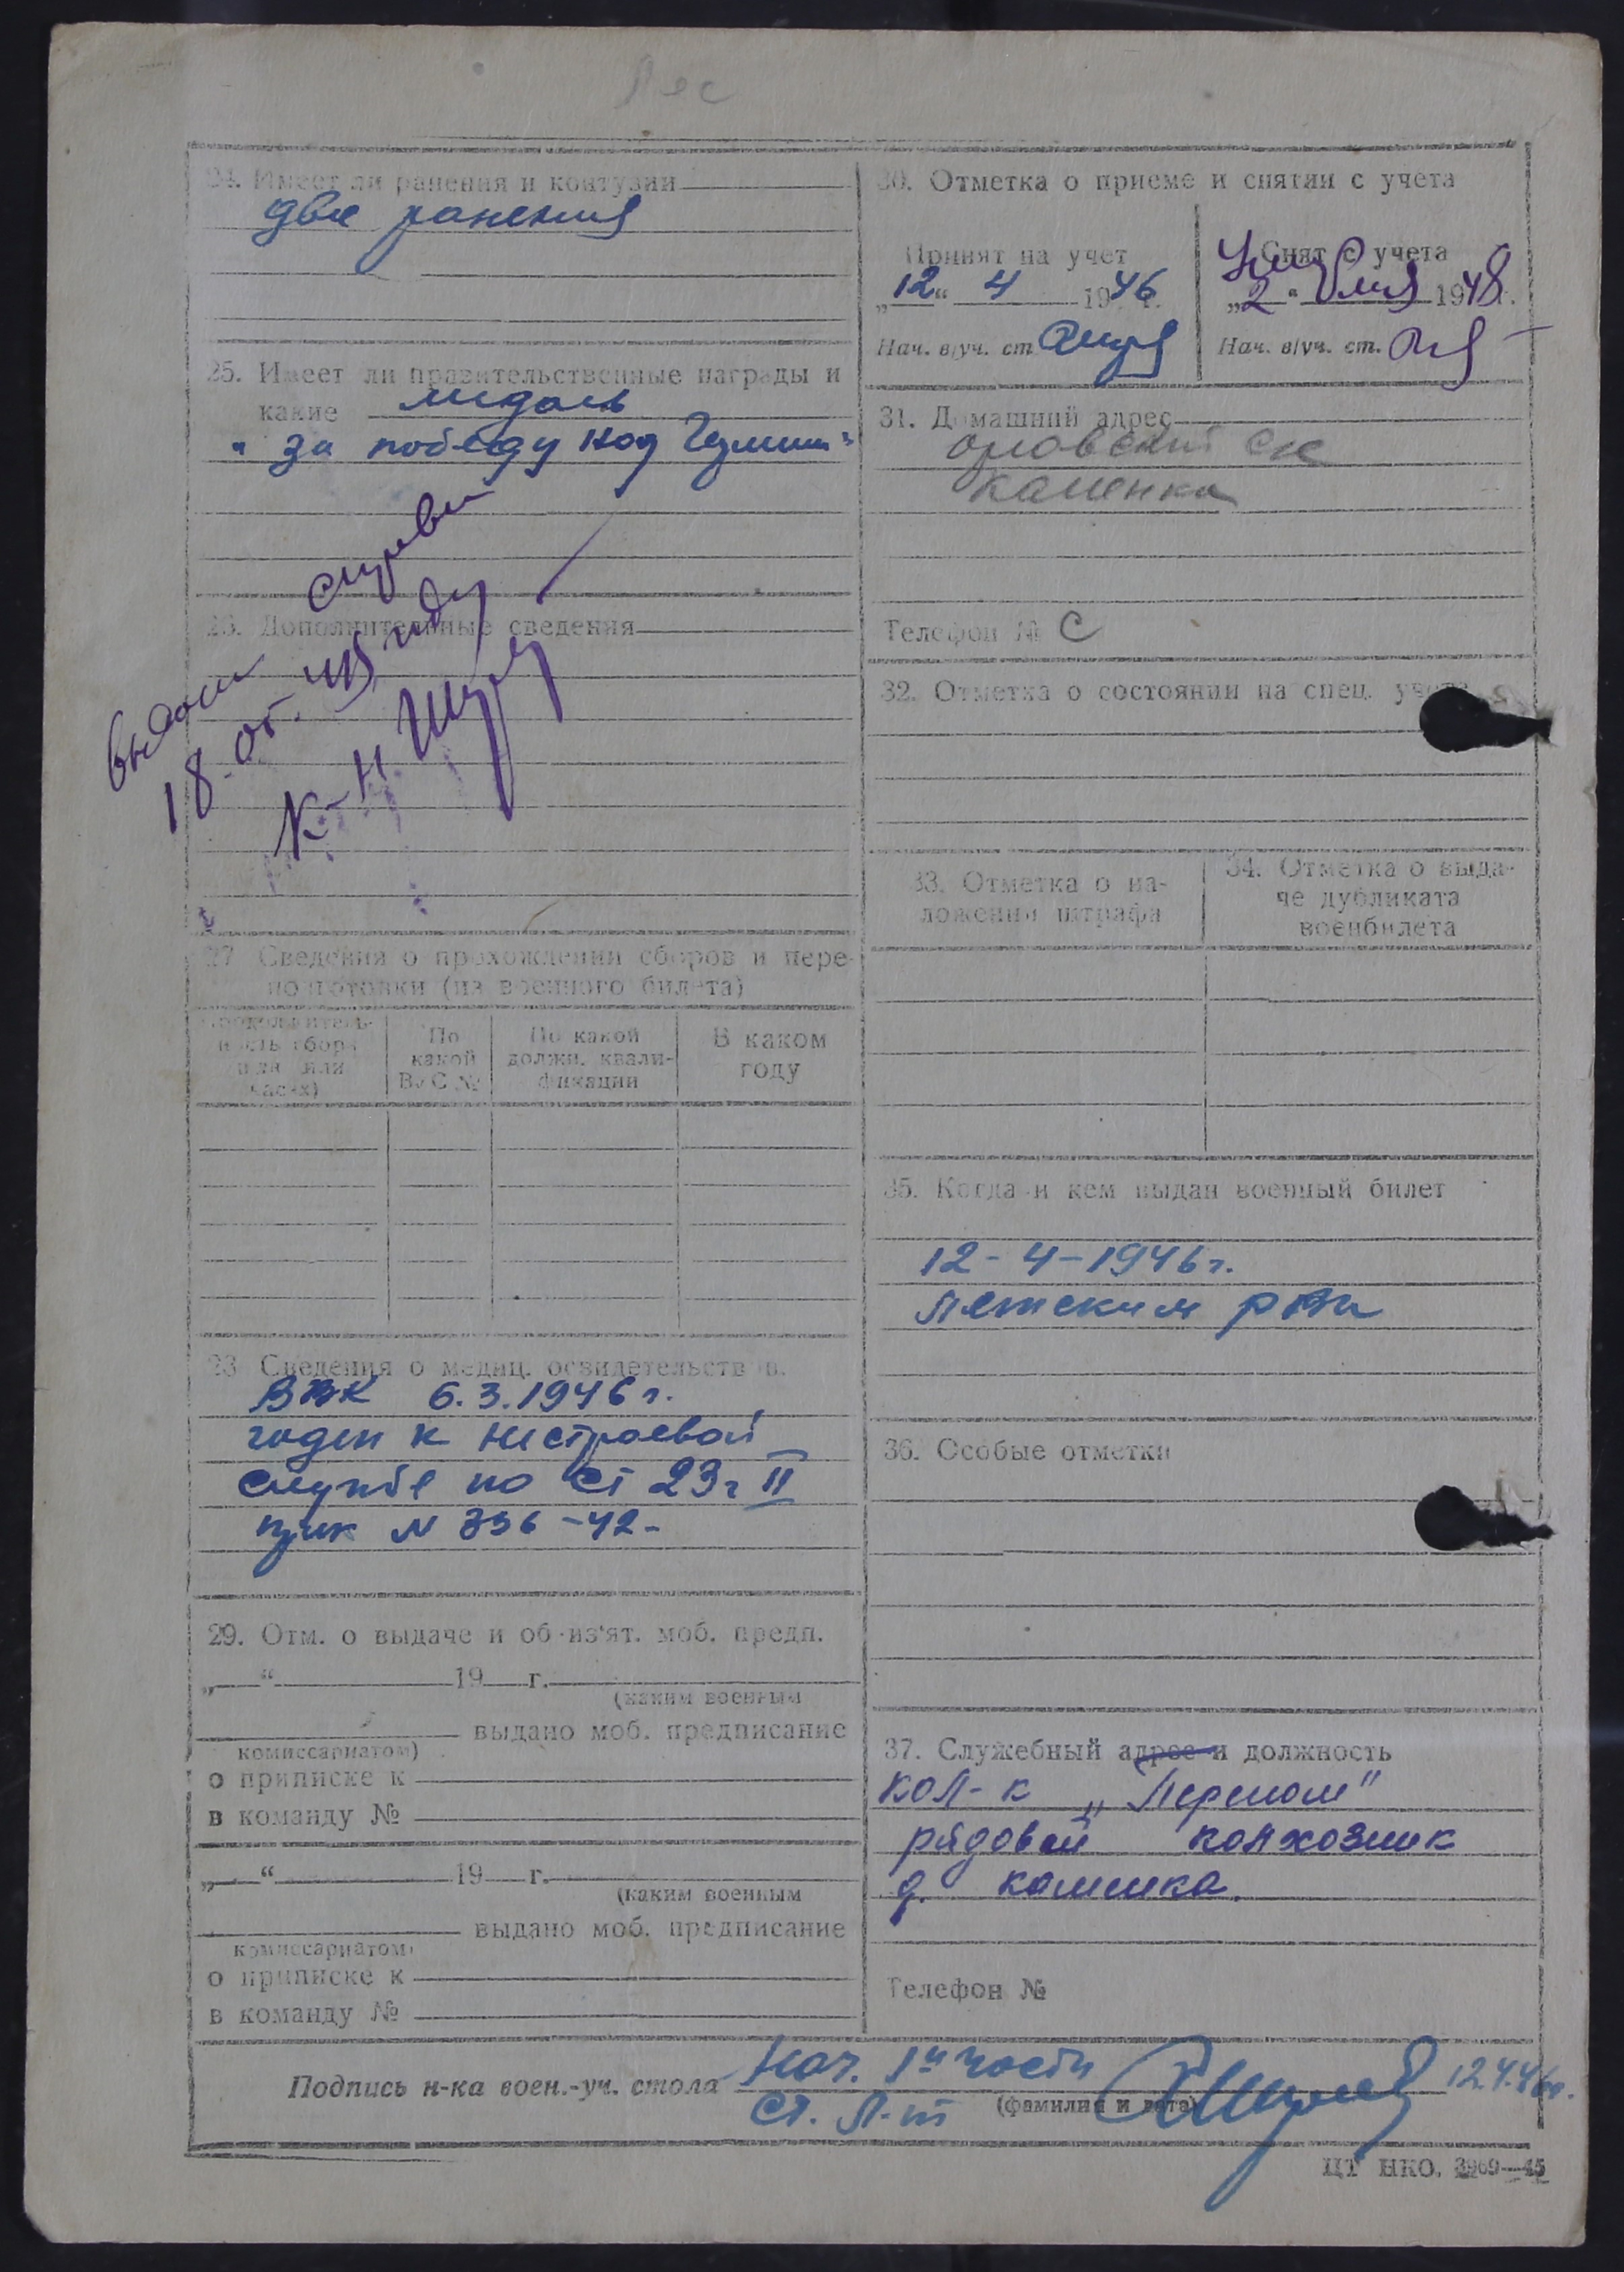 Лес
24. Имеет ли ранения и контузии
два ранения
25. Имеет ли правительственные награды и
какие медаль
"за победу над Герман"
26. Дополнительные сведения
выдан
18. 07. 48 году
к-н
27 Сведения о прохождении сборов и пере-
подготовки (из военного билета)
Продолжитель-
ность сбора
(в дн. или
часах)
По
какой
ВУС №
По какой
должн. квали-
фикации
В каком
году
28 Сведения о медиц. освидетельствов.
ВВК 6.3.1946 г.
годен к нестроевой
службе по ст 23 г II
прик N 336-42-
29. Отм. о выдаче и об из'ят. моб. предп.
„ “ 19 г.
(каким военным
выдано моб. предписание
комиссариатом)
о приписке к
в команду №
„ “ 19 г.
(каким военным
выдано моб. предписание
комиссариатом)
о приписке к
в команду №
30. Отметка о приеме и снятии с учета
Принят на учет
„12“ 4 1946 г.
Нач. в/уч. ст.
Снят с учета
„2“ 1948 г.
Нач. в/уч. ст.
31. Домашний адрес
Орловский с/с
Каменка
Телефон № С
32. Отметка о состоянии на спец. учете
33. Отметка о на-
ложении штрафа
34. Отметка о выда-
че дубликата
военбилета
35. Когда и кем выдан военный билет
12-4-1946 г.
Летским рвк
36. Особые отметки
37. Служебный адрес и должность
кол-к „Перелом"
рядовой колхозник
д. Каменка.
Телефон №
Подпись н-ка воен.-уч. стола Нач. 1й части 12.4.46 г.
ст. л-т (фамилия и дата)
ЦТ НКО. 3969—45